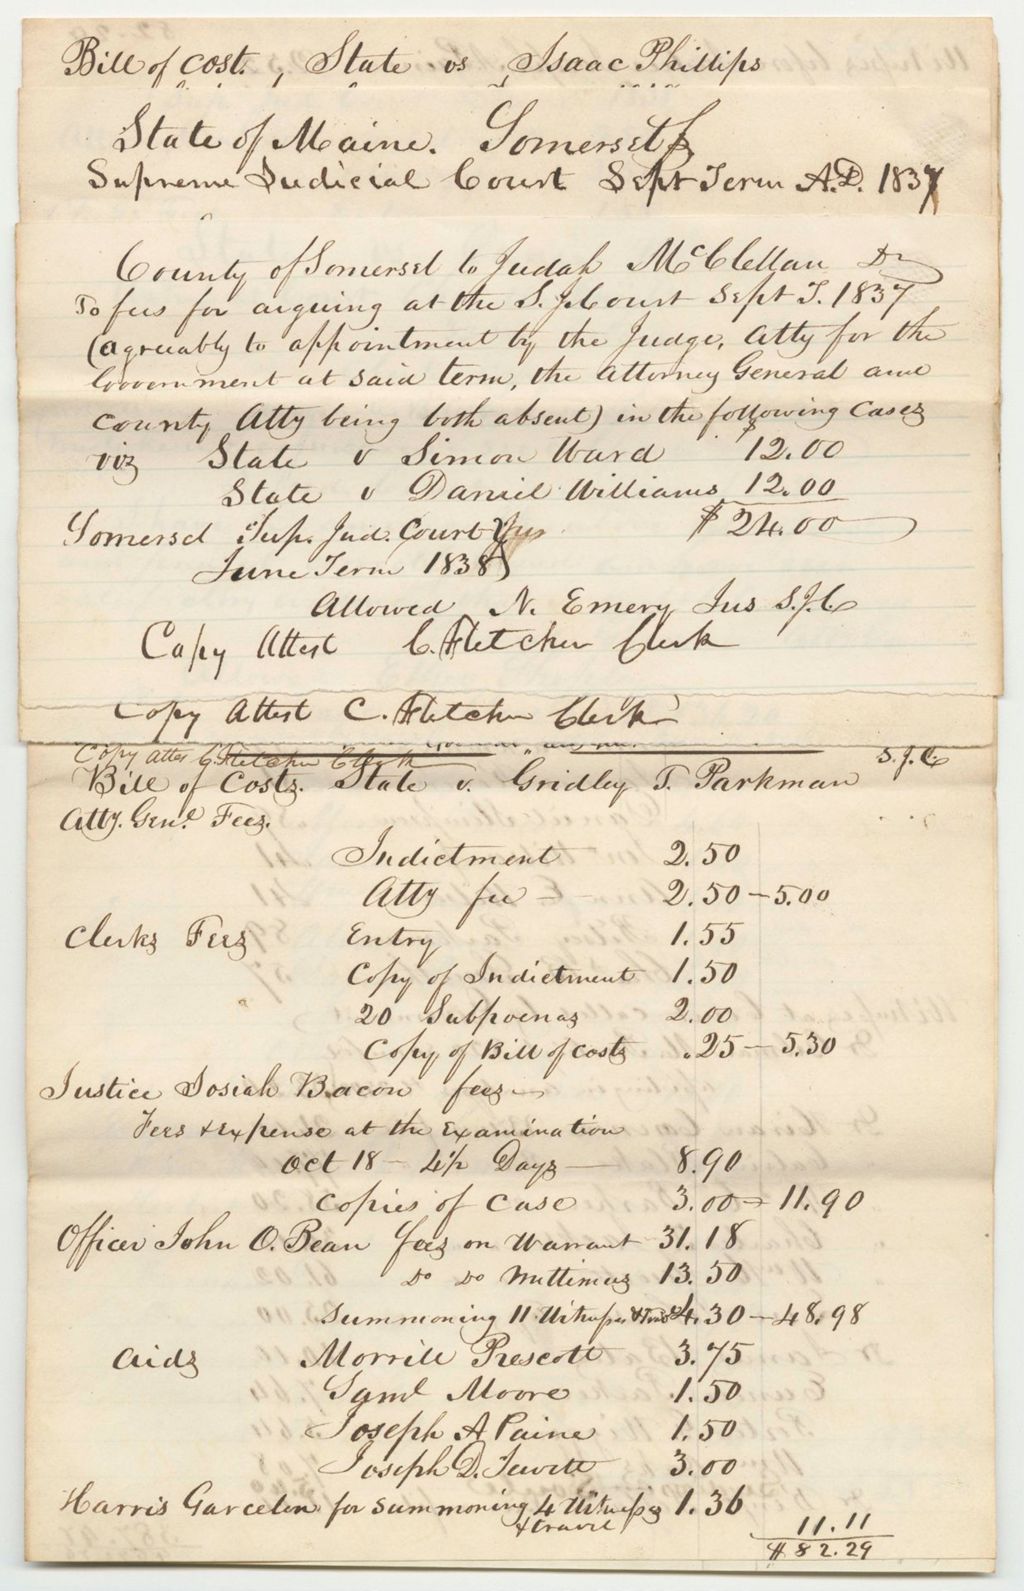 Bill of Cost. , State vs Isaac Phillips
State of Maine. Somerset ss
Supreme Judicial Court Sept Term A.D. 1837
County of Somerset to Judah McClellan Dr
To fees for arguing at the S. J. Court Sept T. 1837
(agreeably to appointment by the Judge, Atty for the
Government at said term, the Attorney General and
county Atty being both absent) in the following cases
viz State v Simon Ward $12.00
State v Daniel Williams 12.00
Somerset Sup. Jud. Court $24.00
June Term 1838)
Allowed N. Emery Jus S.J.C
Copy Attest C. Fletcher Clerk
Copy Attest C. Fletcher Clerk
Copy Attes C. Fletcher Clerk S.J.C.
Bill of Costs. State v. Gridley T. Parkman
Atty. Genl. Fees.
Indictment 2.50
Atty fee - 2.50 - 5.00
Clerks Fees Entry 1.55
Copy of Indictment 1.50
20 Subpoenas 2.00
Copy of Bill of costs .25 - 5.30
Justice Josiah Bacon fees
Fees & expense at the Examination
Oct 18 - 4 1/2 Days 8.90
Copies of Case 3.00 - 11.90
Officer John O. Bean fees on Warrant 31.18
Do Do Mittimus 13.50
Summoning 11 Witnesses 4.30 - 48.98
Aids Morrill Prescott 3.75
Saml Moore 1.50
Joseph A Paine 1.50
Joseph D. Jewett 3.00
Harris Garcelon for summoning 4 Witnesses 1.36
& travel
11.11
$82.29